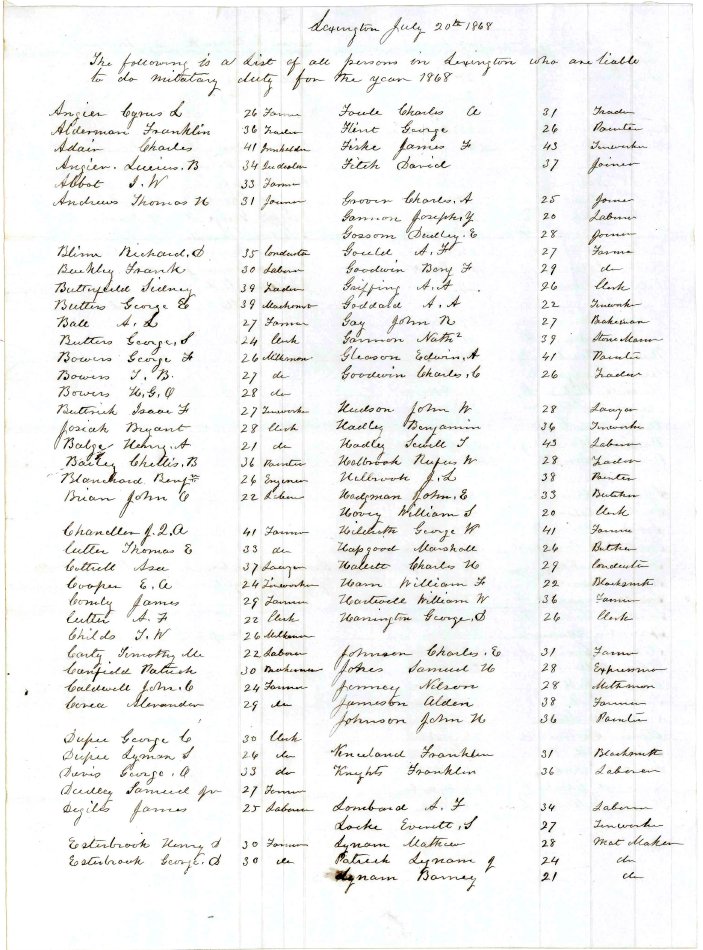 Lexington July 20th 1868
The following is a List of all persons in Lexington who are liable
to do military duty for the year 1868
Angier Cyrus L 26 Farmer
Alderman Franklin 36 Trader
Adair Charles 41
Angier. Lucius. B 34
Abbot J. W 33 Farmer
Andrews Thomas H 31 Joiner
Bliss Richard, D 35 Conductor
Buckley Frank 30 Laborer
Butterfield Sidney 39 Trader
Butters George E 39 Machinist
Ball A. L 27 Farmer
Butters George, S 24 Clerk
Bowers George F 26 Milkman
Bowers T. B. 27 do
Bowers H. G. O 28 do
Buttrick Isaac F 27 Tinworker
Josiah Bryant 28 Clerk
Babge Henry. A 21 do
Bailey Chellis. B 36 Painter
Blanchard Benjm 26 Engineer
Brian John C 22 Laborer
Chandler J. Q. A 41 Farmer
Cutler Thomas E 33 do
Cottrell Asa 37 Lawyer
Cooper E. A 24 Tinworker
Comly James 29 Farmer
Cutler A. F 22 Clerk
Childs F. W 26 Milkman
Carty Timothy Mc 22 Laborer
Canfield Patrick 30 Brakeman
Caldwell John. C 24 Farmer
Corea Alexander 29 do
Dupee George C 30 Clerk
Dupee Lyman S 26 do
Davis George. O 33 do
Dudley Samuel Jr 27 Farmer
James 25 Laborer
Esterbrook Henry D 30 Farmer
Esterbrook George. D 30 do
Fowle Charles A 31 Trader
Flint George 26 Painter
Fiske James F 43 Tinworker
Fitch David 37 Joiner
Grover Charles. A 25 Joiner
Gannon Joseph. Y 20 Laborer
Gossom Dudley. E 28 Joiner
Gould A. F 27 Farmer
Goodwin Benj F 29 do
Griffing A. A. 26 Clerk
Goddard A. A 22 Tinworker
Gay John N 27 Brakeman
Gammon Nathl 39 Stone Mason
Gleason Edwin, A 41 Painter
Goodwin Charles. C 26 Trader
Hudson John W 28 Lawyer
Hadley Benjamin 36 Tinworker
Hadley Sewell T 43 Laborer
Holbrook Rufus W 28 Trader
Holbrook J. L 38 Painter
Hodgman John. E 33 Butcher
Hovey William S 20 Clerk
Hildreth George W 41 Farmer
Hapgood Marshall 26 Butcher
Halett Charles H 29 Conductor
Ham William F 22 Blacksmith
Hartwell William W 36 Farmer
Harrington George. D 26 Clerk
Johnson Charles. E 31 Farmer
Jones Samuel H 28 Expressman
Jenney Nelson 28 Milkman
Jameson Alden 38 Farmer
Johnson John H 36 Painter
Kneeland Franklin 31 Blacksmith
Knights Franklin 36 Laborer
Lombard A. F 34 Laborer
Locke Everett, S 27 Tinworker
Lynam Mathew 28 Mat Maker
Patrick Lynam 24 do
Lynam Barney 21 do